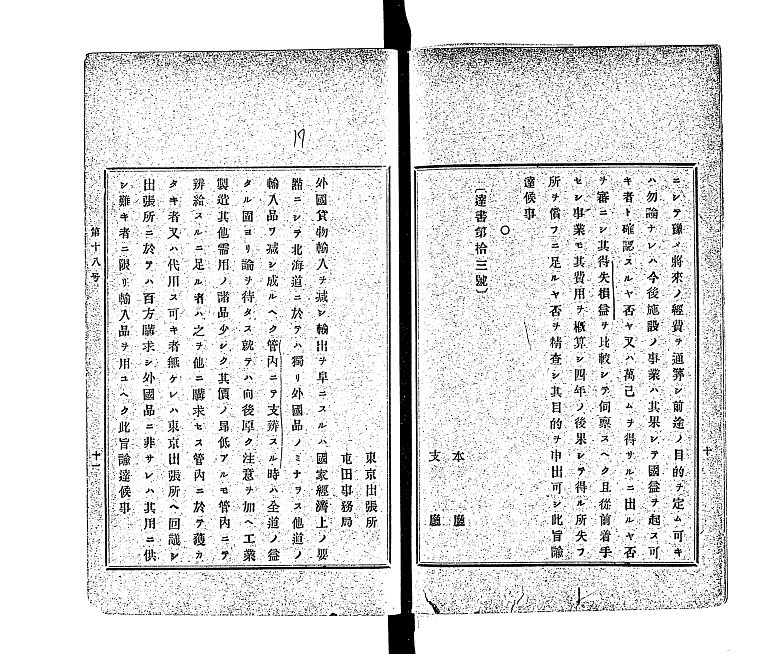 ニシテ豫メ將來ノ經費ヲ通算シ前途ノ目的ヲ定ム可キ
ハ勿論ナレハ今後施設ノ事業ハ其果シテ國益ヲ起ス可
キ者ト確認スルヤ否ヤ又ハ萬已ムヲ得サルニ出ルヤ否
ヲ審ニシ其得失損益ヲ比較シテ伺禀スヘク且從前着手
セシ事業モ其費用ヲ概算シ四年ノ後果シテ得ル所失フ
所ヲ償フニ足ルヤ否ヲ精査シ其目的ヲ申出可シ此旨諭
達候事
○
〔達書第拾三號〕
本廳
支廳
十
東京出張所
屯田事務局
外國貨物輸入ヲ减シ輸出ヲ阜ニスルハ國家經濟上ノ要
諸ニシテ北海道ニ於テハ獨リ外國品ノミナラス他道ノ
輸入品ヲ减シ成ルヘク管内ニテ支辨スル時ハ全道ノ益
タル固ヨリ論ヲ待タス就テハ向後厚ク注意ヲ加ヘ工業
製造其他需用ノ諸品少シク其價ノ昂低アルモ管内ニテ
辨給スルニ足ル者ハ之ヲ他ニ購求セス管内ニ於テ獲カ
タキ者又ハ代用ス可キ者無ケレハ東京出張所ヘ回議シ
出張所ニ於テハ百方購求シ外國品ニ非サレハ其用ニ供
シ難キ者ニ限リ輸入品ヲ用ユヘク此旨諭達候事
第十八号
十一
17